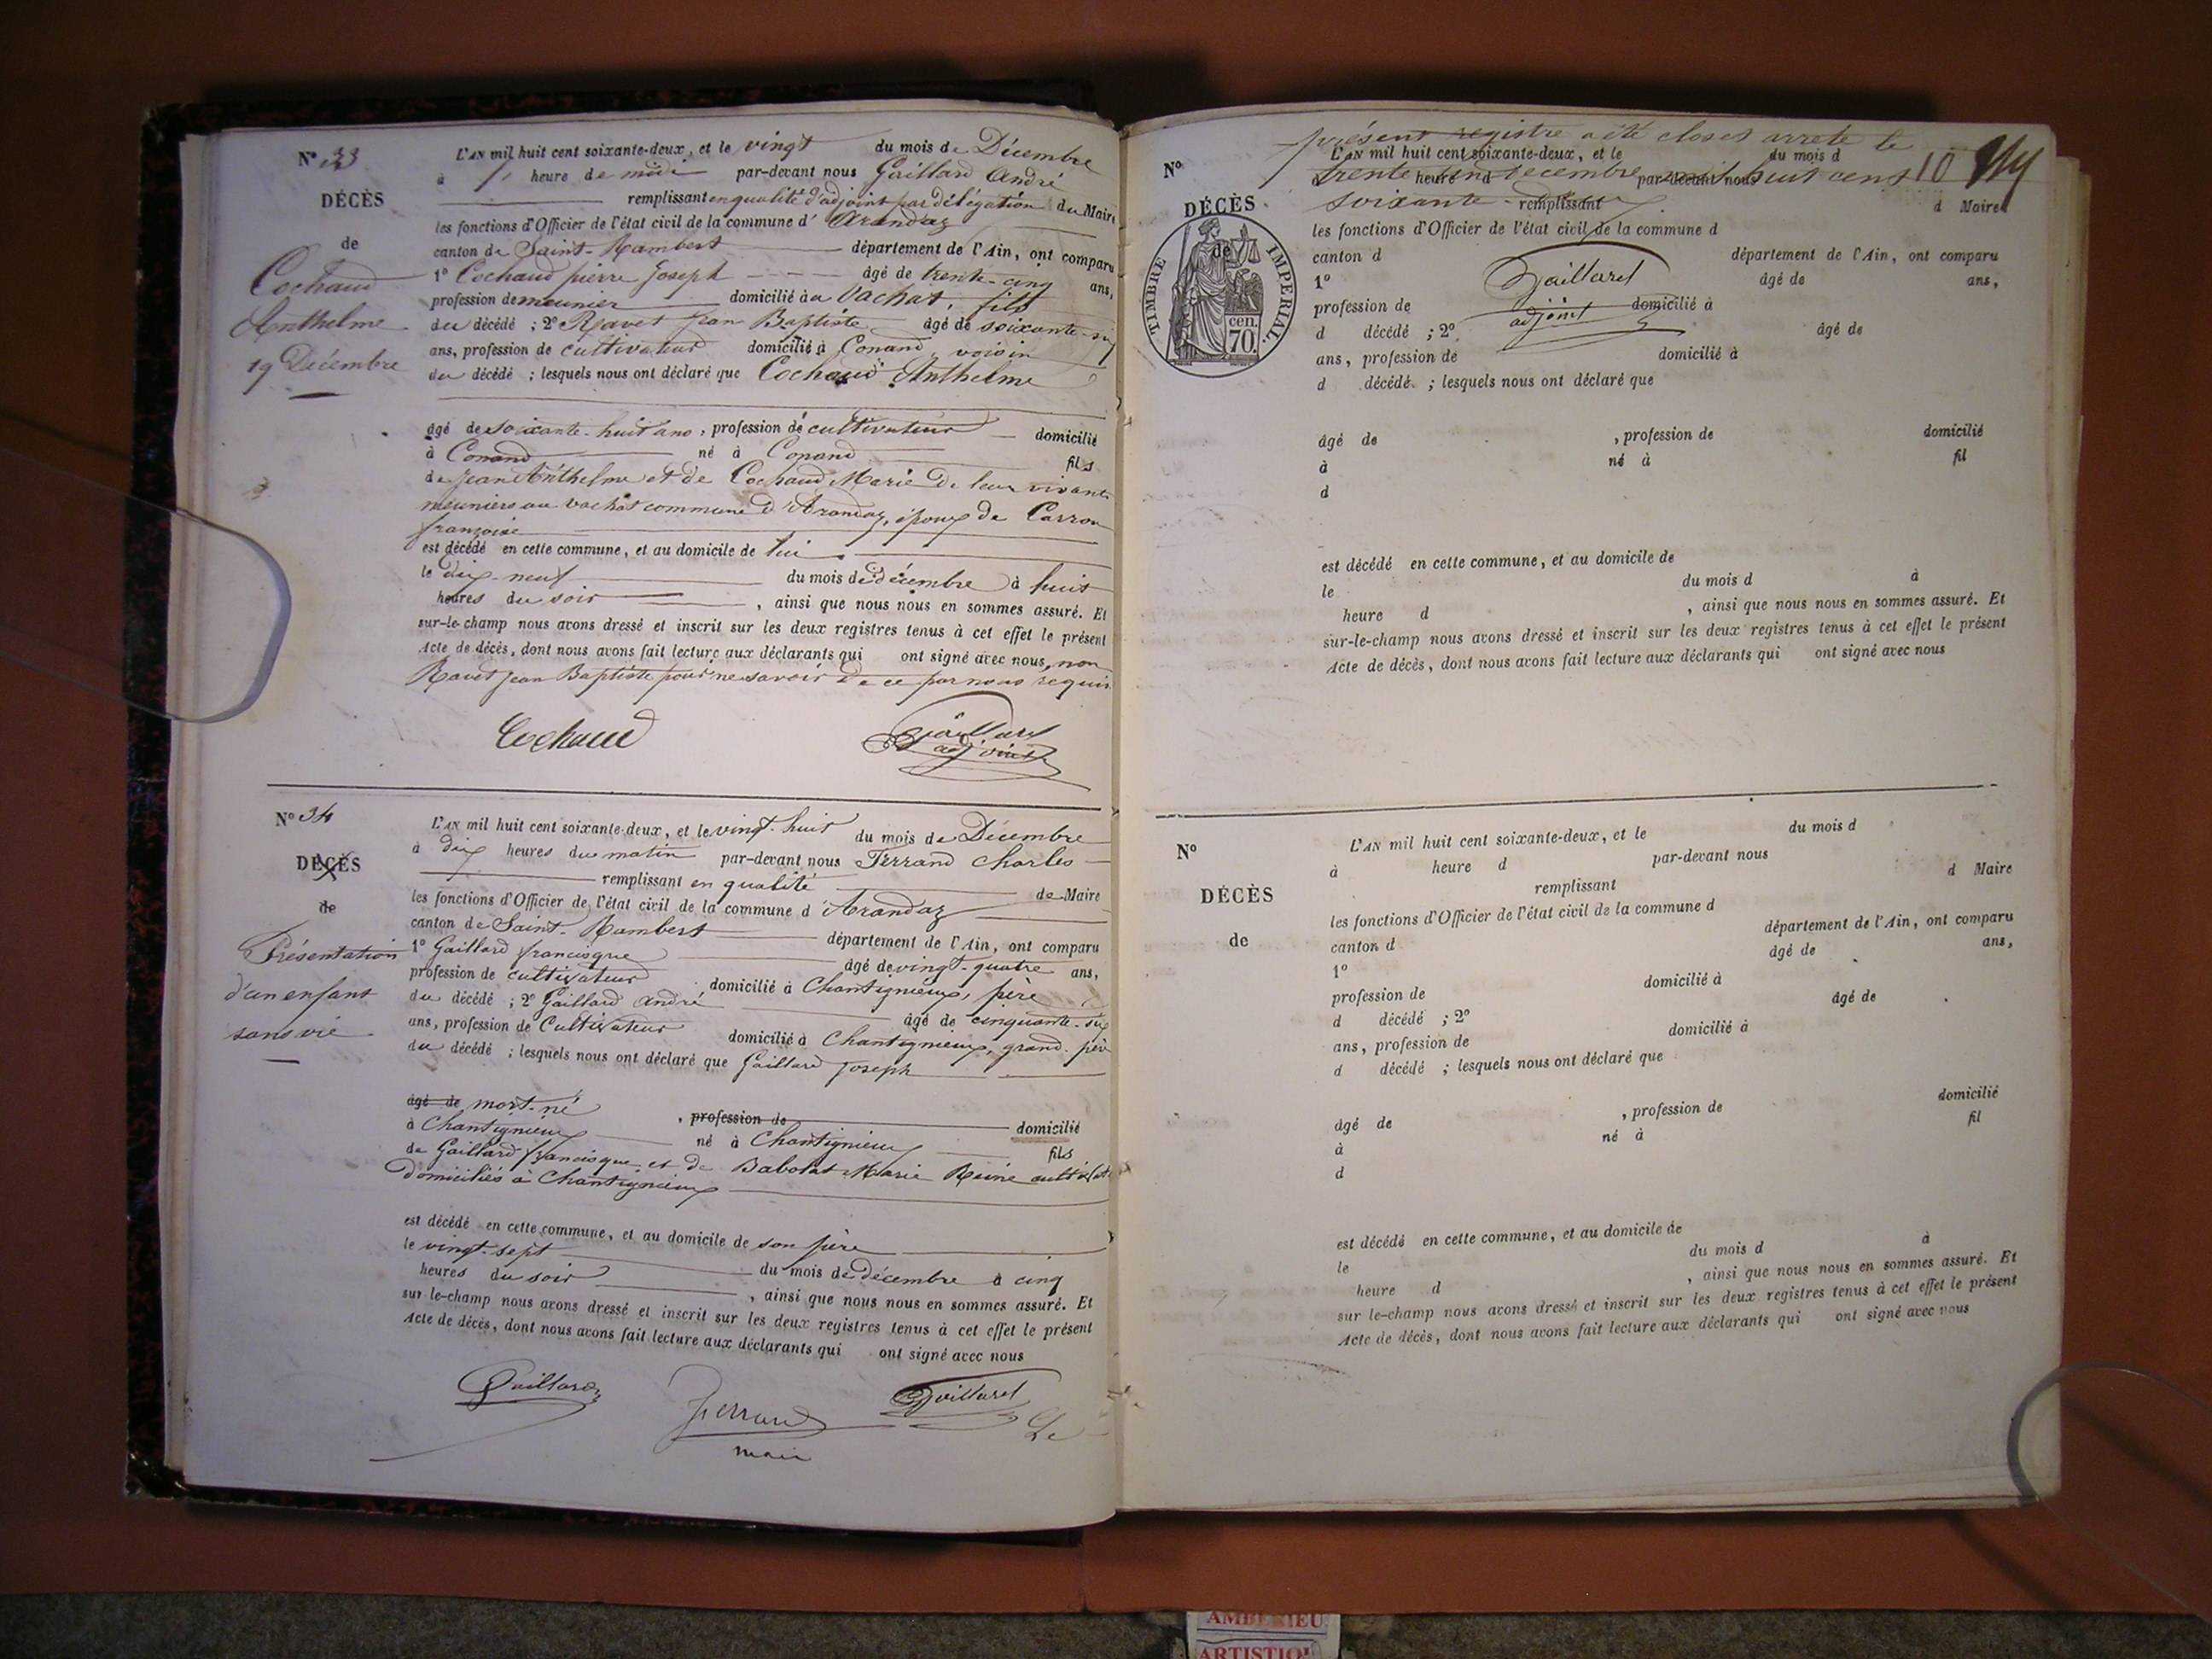 N° 33
DÉCÈS
de
Cochaud
Anthelme
19 Décembre
L'AN mil huit cent soixante-deux, et le vingt du mois de Décembre
à heure de midi par-devant nous Gaillard André
remplissant en qualité d'adjoint par délégation du Maire
les fonctions d'Officier de l'état civil de la commune d'Arandaz
canton de Saint-Rambert département de l'Ain, ont comparu
1° Cochaud pierre Joseph âgé de trente-cinq ans,
profession de meunier domicilié au Vachat, fils
du décédé ; 2° Ravet Jean Baptiste âgé de soixante-six
ans, profession de cultivateur domicilié à Conand, voisin
du décédé ; lesquels nous ont déclaré que Cochaud Anthelme
âgé de soixante-huit ans, profession de cultivateur domicilié
à Conand né à Conand fils
de Jean Anthelme et de Cochaud Marie de leur vivant
meuniers au vachat commune d'Arandaz, époux de Carron
françoise
est décédé en cette commune, et au domicile de lui
le dix-neuf du mois de décembre à huit
heures du soir, ainsi que nous nous en sommes assuré. Et
sur-le-champ nous avons dressé et inscrit sur les deux registres tenus à cet effet le présent
Acte de décès, dont nous avons fait lecture aux déclarants qui ont signé avec nous, non
Ravet Jean Baptiste pour ne savoir de ce par nous requis
Cochaud
Gaillard
adjoint
N° 34
DÉCÈS
de
Présentation
d'un enfant
sans vie
L'AN mil huit cent soixante-deux, et le vingt-huit du mois de Décembre
à dix heures du matin par-devant nous Ferrand Charles
remplissant en qualité de Maire
les fonctions d'Officier de l'état civil de la commune d'Arandaz
canton de Saint-Rambert département de l'Ain, ont comparu
1° Gaillard francisque âgé de vingt-quatre ans,
profession de cultivateur domicilié à Chantignieux, père
du décédé ; 2° Gaillard André âgé de cinquante-six
ans, profession de Cultivateur domicilié à Chantignieux, grand-père
du décédé ; lesquels nous ont déclaré que Gaillard Joseph
âgé de mort-né, profession de domicilié
à Chantignieux né à Chantignieux fils
de Gaillard francisque et de Babolat Marie Reine
domiciliés à Chantignieux
est décédé en cette commune, et au domicile de son père
le vingt-sept du mois de décembre à cinq
heures du soir, ainsi que nous nous en sommes assuré. Et
sur-le-champ nous avons dressé et inscrit sur les deux registres tenus à cet effet le présent
Acte de décès, dont nous avons fait lecture aux déclarants qui ont signé avec nous
Gaillard
Ferrand
Gaillard
maire
Le
présent registre a été closet arrete le
N°
L'AN mil huit cent soixante-deux, et le du mois d
trente un decembre mil huit cent 10
à heure d par-devant nous
DÉCÈS
soixante
remplissant d Maire
de
TIMBRE IMPERIAL
70 cen.
les fonctions d'Officier de l'état civil de la commune d
canton d département de l'Ain, ont comparu
Gaillard
adjoint
1° âgé de ans,
profession de domicilié à
d décédé ; 2° âgé de
ans, profession de domicilié à
d décédé ; lesquels nous ont déclaré que
âgé de , profession de domicilié
à né à fil
d
est décédé en cette commune, et au domicile de
le du mois d à
heure d , ainsi que nous nous en sommes assuré. Et
sur-le-champ nous avons dressé et inscrit sur les deux registres tenus à cet effet le présent
Acte de décès, dont nous avons fait lecture aux déclarants qui ont signé avec nous
N°
DÉCÈS
de
L'AN mil huit cent soixante-deux, et le du mois d
à heure d par-devant nous
remplissant d Maire
les fonctions d'Officier de l'état civil de la commune d
canton d département de l'Ain, ont comparu
1° âgé de ans,
profession de domicilié à
d décédé ; 2° âgé de
ans, profession de domicilié à
d décédé ; lesquels nous ont déclaré que
âgé de , profession de domicilié
à né à fil
d
est décédé en cette commune, et au domicile de
le du mois d à
heure d , ainsi que nous nous en sommes assuré. Et
sur le-champ nous avons dressé et inscrit sur les deux registres tenus à cet effet le présent
Acte de décès, dont nous avons fait lecture aux déclarants qui ont signé avec nous
AMBERIEU
ARTISTIQU